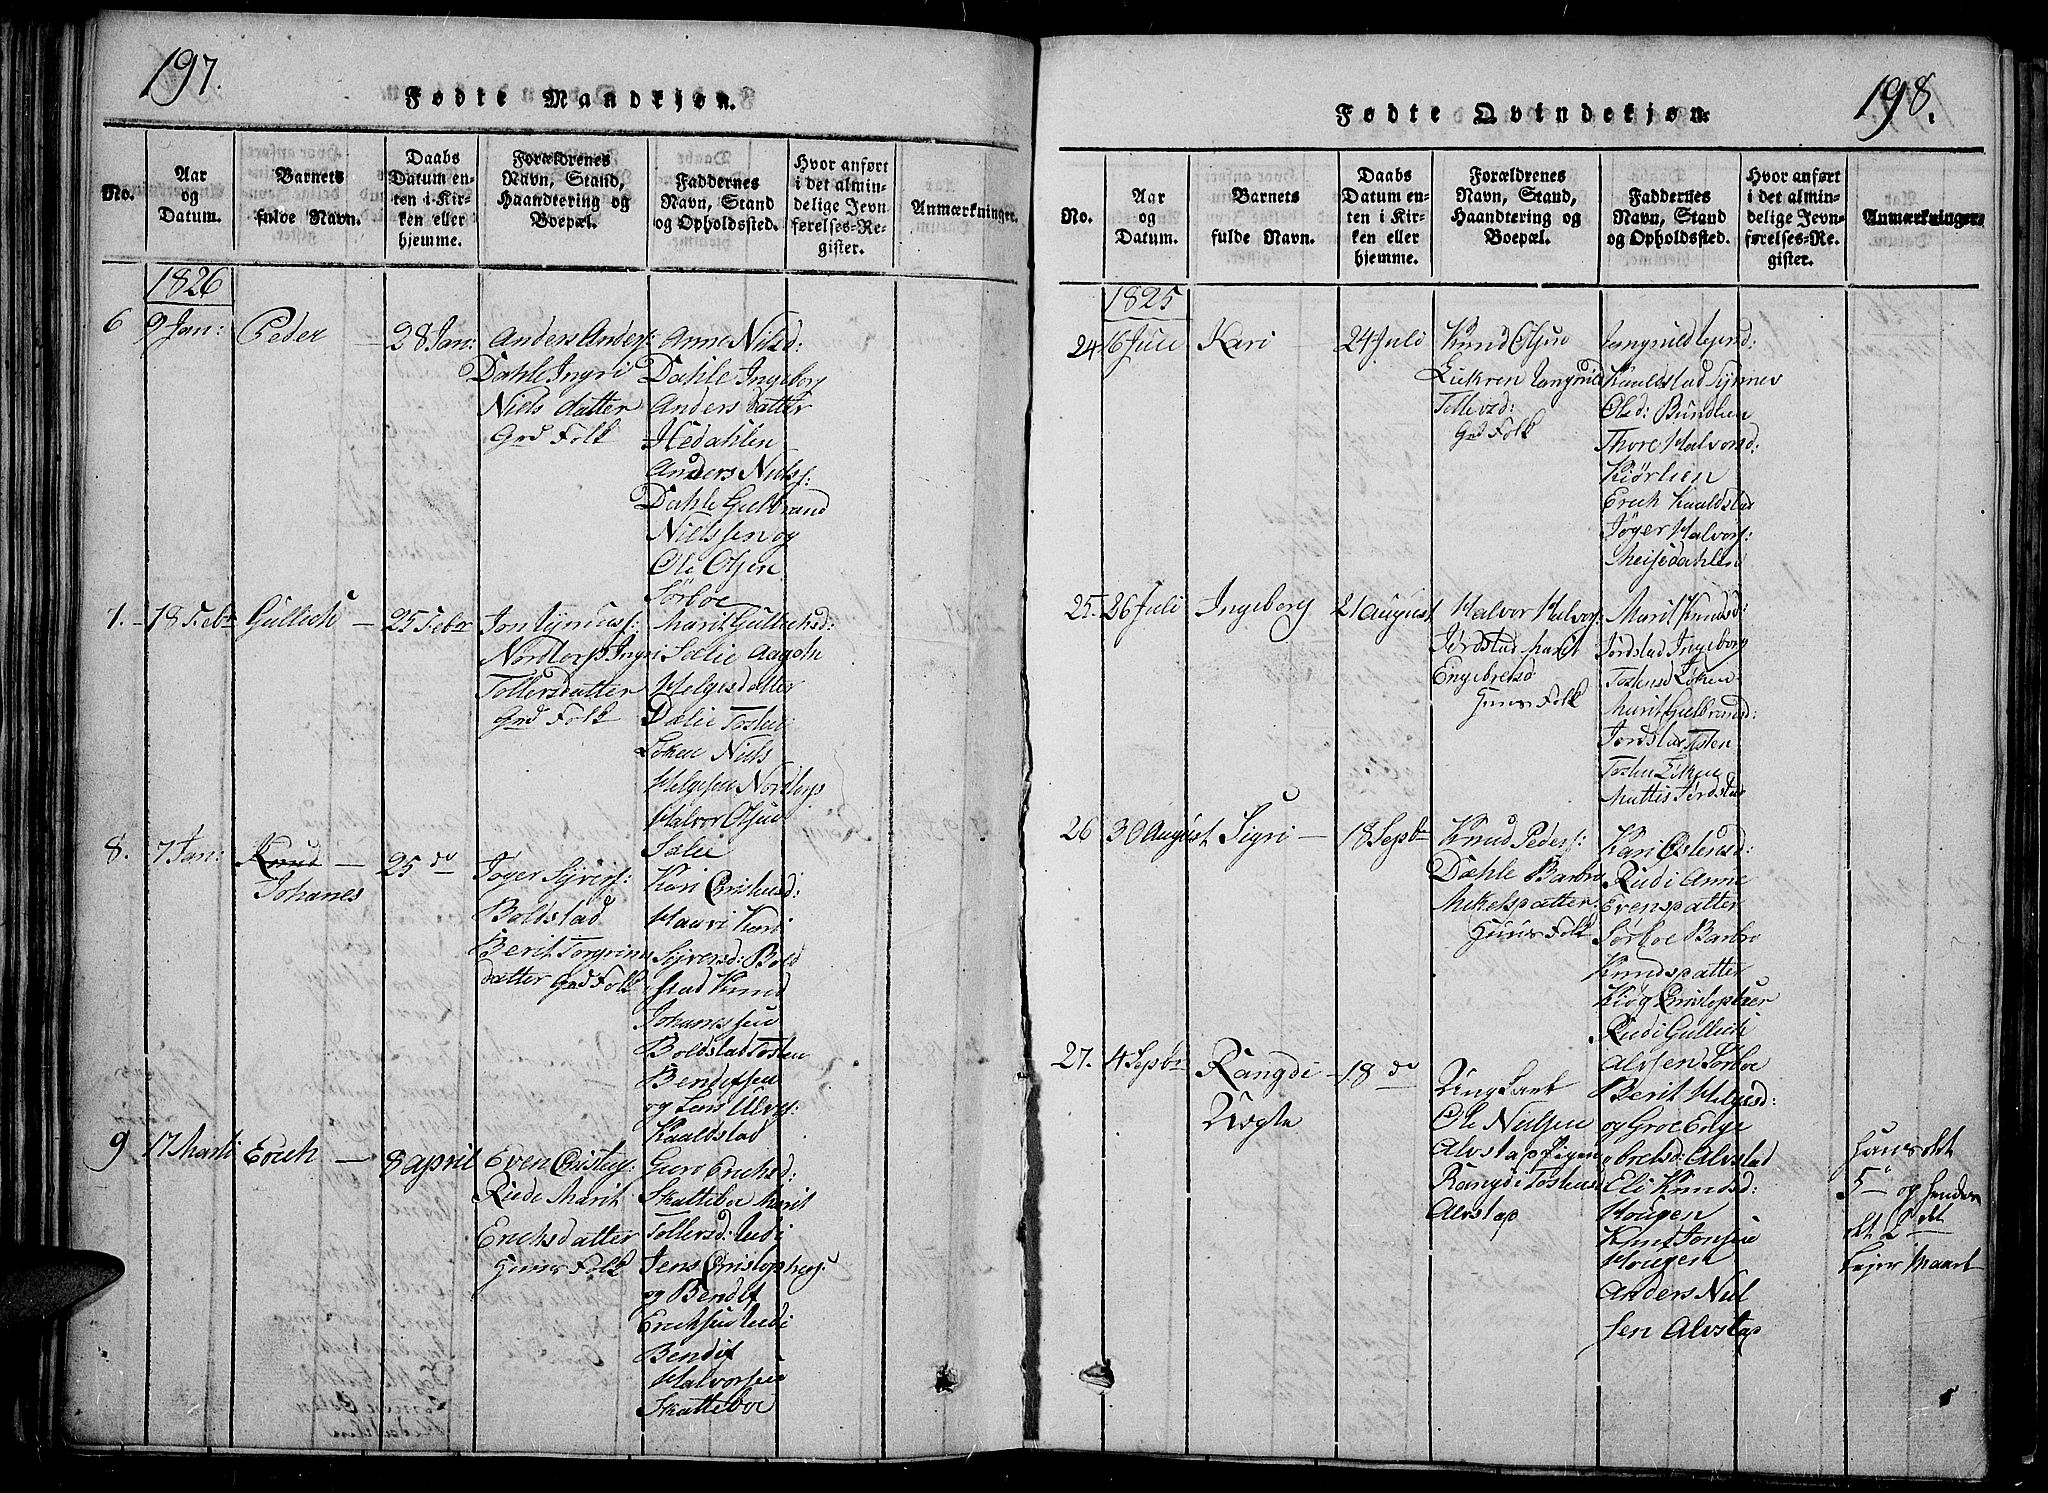 197.
Fødte Mandkjøn.
No.
Aar
og
Datum.
Barnets
fulde Navn.
Daabs
Datum en-
ten i Kir-
ken eller
hjemme.
Forældrenes
Navn, Stand,
Haandtering og
Boepæl.
Faddernes
Navn, Stand
og Opholdssted.
Hvor anført
i det almin-
delige Jevn
førelses-Re-
gister.
Anmærkninger.
1826
6
9 Jan:
Peder
28 Jan:
Anders Anders:
Dahle Ingri
Niels datter
Grd Folk
Anne Nilsd:
Dahle Ingeborg
Anders datter
Hedahlen
Anders Niels:
Dahle Gulbrand
Nielssen og
Ole Olsen
Sørboe
7.
18 Febr
Gullich
25 Febr
Jon
Nordtorp Ingri
Tollersdatter
Grd Folk
Marit Gullichsd:
Sælie Aagoth
Helgesdatter
Dælie Tosten
Løken Niels
Helgesen Nordtorp
Halvor Olsen
Sælie
8.
7 Jan:
Knud
Johanes
25 do
Joger Syvers:
Boldstad
Berit Torgrims
datter Grd Folk
Kari Cristensd:
Haavri Kari
Syversd: Bold
stad Knud
Johanessen
Boldstad Tosten
Bendixsen
og Jens
Kaaldstad
9
17 Marti
Erich
8 April
Even Cristop:
Riide Marit
Erichsdatter
Huus Folk
Guro Erichsd:
Skattebøe Marit
Tollersd: Rudi
Jens Christophers:
og Bendix
Erichsen Rudi
Bendix
Halvorsen
Skatteboe
198.
Fødte Qvindekjøn.
No.
Aar
og
Datum.
Barnets
fulde Navn.
Daabs
Datum en-
ten i Kir-
ken eller
hjemme.
Forældrenes
Navn, Stand,
Haandtering og
Boepæl.
Faddernes
Navn, Stand
og Opholdssted.
Hvor anført
i det almin-
delige Jevn-
førelses-Re-
gister.
Anmærkninger
1825
24
16 Juli
Kari
24 Juli
Knud Olsen
Liekren Jangrid
Tollevsd:
Grd Folk
Kaaldstad Synnev
Olsd: Bundlien
Thore Halvorsd:
Kiørlien
Erich Kaaldstad
Jøger Halvors:
Meisedahlen
25.
26 Juli
Ingeborg
21 August
Halvor Halvors:
Jørdstad Marit
Engebretsd
Huus Folk
Marit Knudsd:
Jørdstad Ingeborg
Tostensd Løken
Marit Gulbrandsd:
Jordstad Tosten
Tosten
Mattis Jørdstad
26
30 August
Sigri
18 Septbr
Knud Peders:
Dahle Barbro
Mikelsdatter
Huus Folk
Kari Ostensd:
Riidi Anne
Evensdatter
Sørboe Barbro
Knudsdatter
Kiøg Cristopher
Riidi Gullich
Alfsen Sørboe
27.
4 Septbr
Rangdi
Uægte
18 do
Ungkarl
Ole Nielsen
Alvstad Pigen
Rangdi Tostensd
Alvstad
Berit Helgesd:
og Groe Enge
bretsd: Alvstad
Eli Knudsd:
Hougen
Knud Jonsen
Hougen
Anders Niel
sen Alvstad
Hans det
5te og hendes
dt 2det
Lejer maal